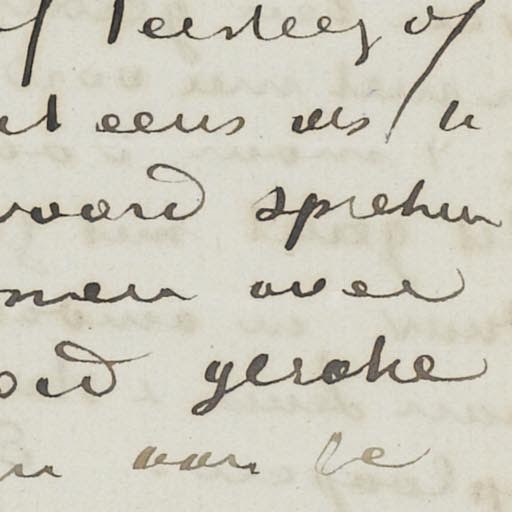 of Tersteeg of
t eens als U
woord spreken
men over
ed gesproke
n van Se